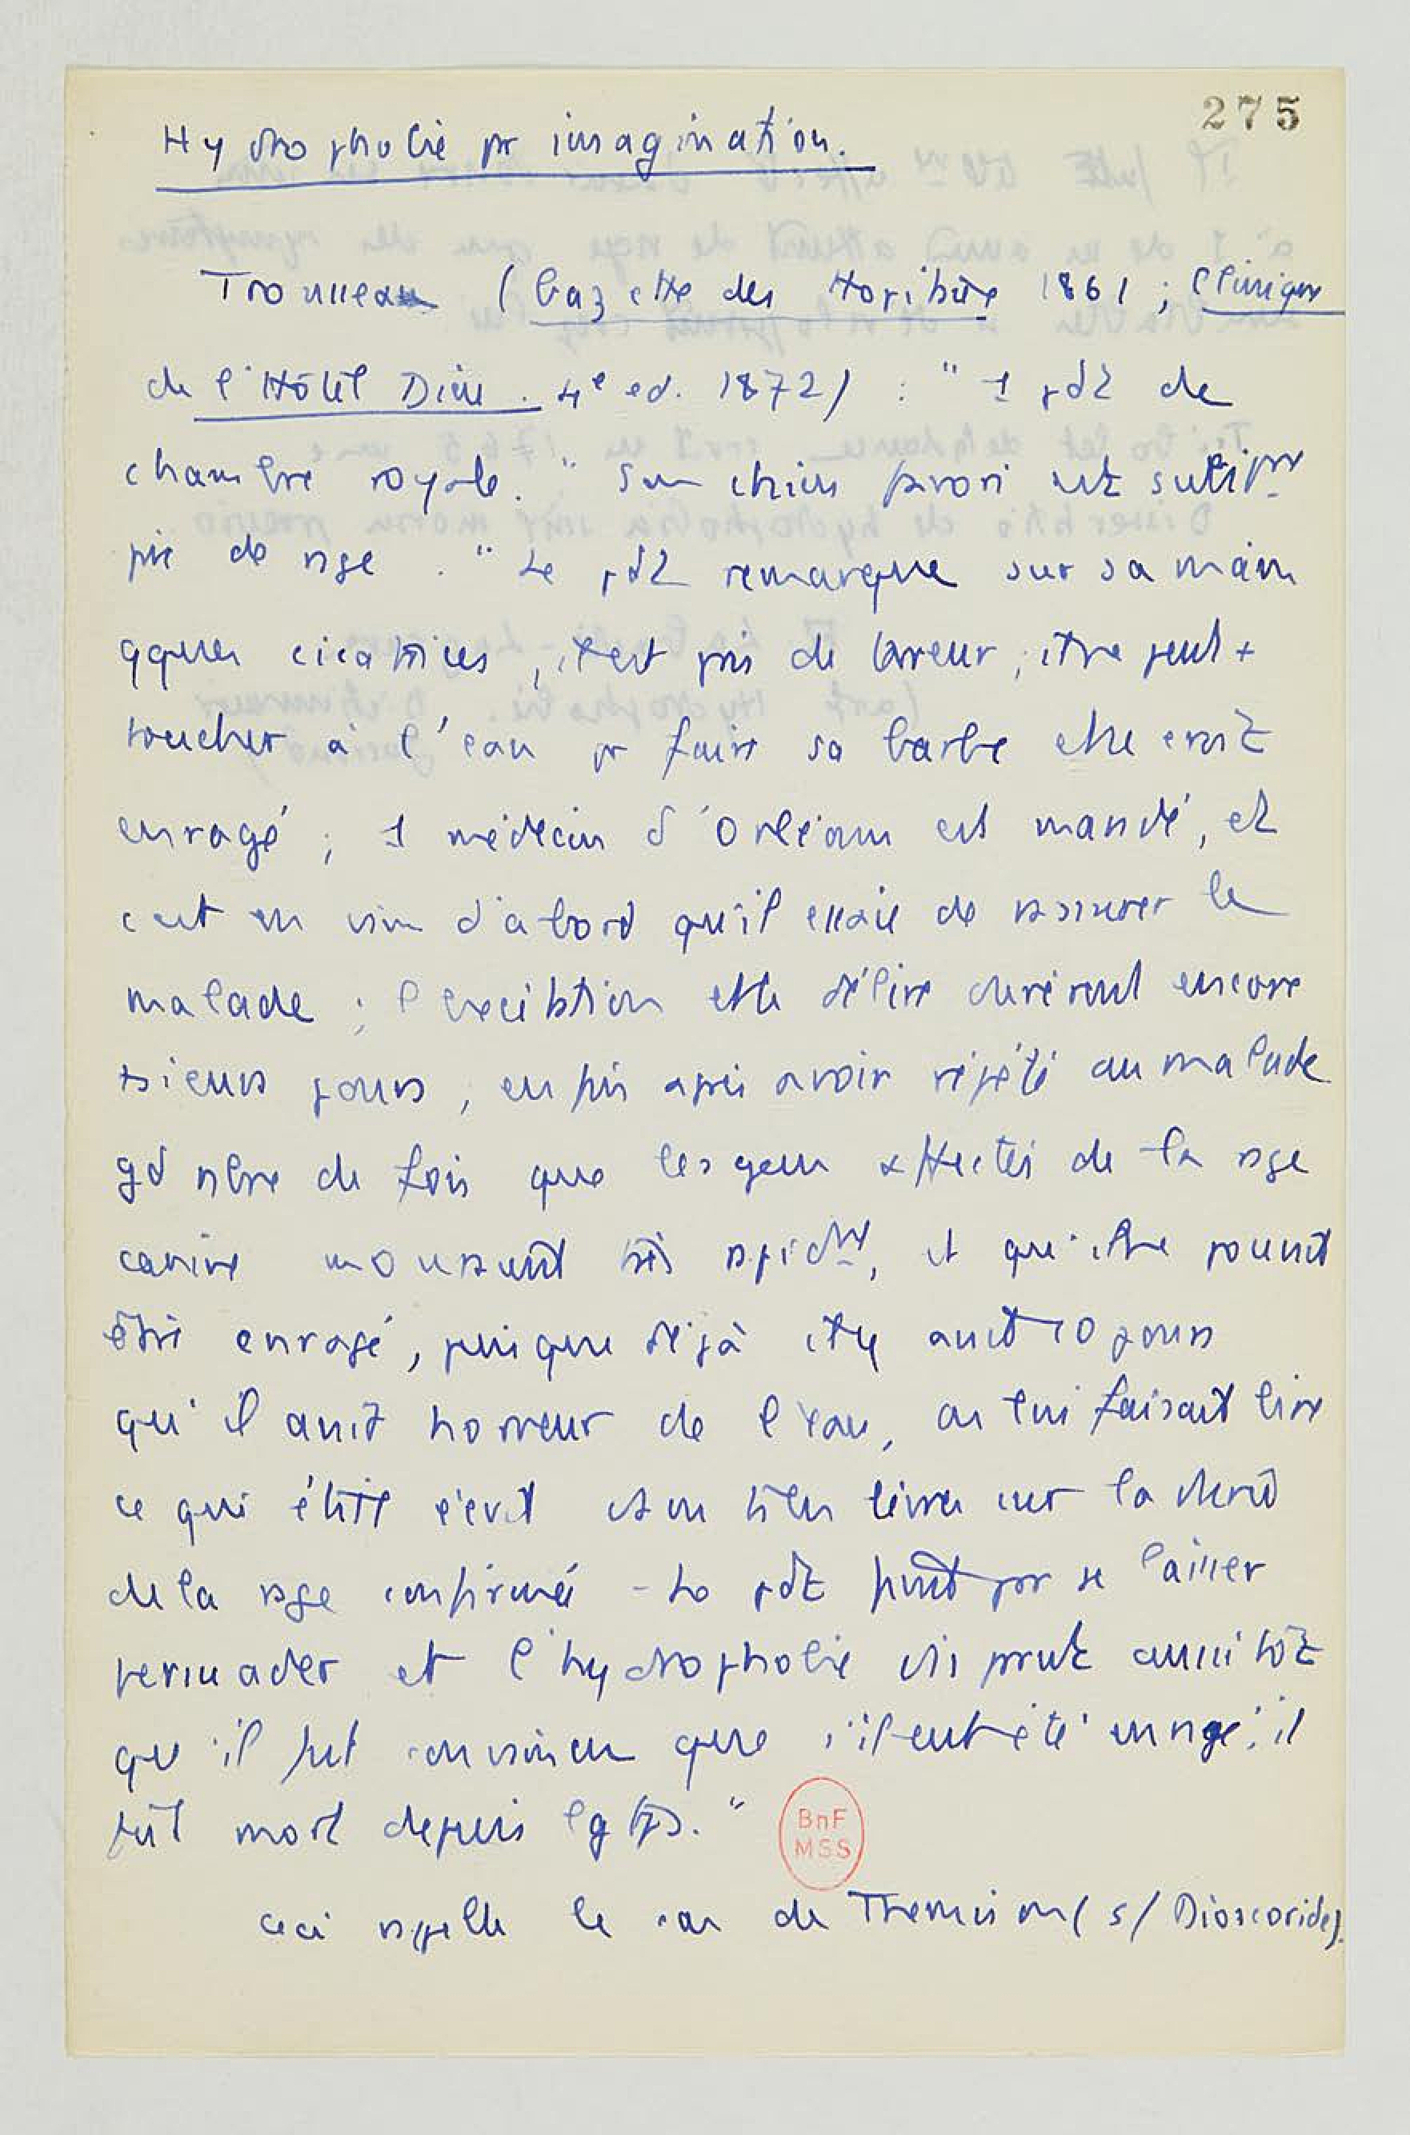 275
Hydrophobie pr imagination.
Trousseau (Gazette des Hopitaux 1861 ; Clinique
de l'Hôtel Dieu. 4e ed. 1872) : " 1 pdt de
chambre royale. " Son chien favori est subitmt
pris de rage. " Le pdt remarque sur sa main
qques cicatrices, il est pris de terreur, il ne peut +
toucher à l'eau pr faire sa barbe et se croit
enragé ; 1 médecin d'Orléans est mandé, et
c'est en vain d'abord qu'il essaie de rassurer le
malade ; l'excitation et le délire durèrent encore
+sieurs jours, enfin après avoir répété au malade
gd nbre de fois que les gens affectés de la rage
canine mouraient très rapidmt, et qu'il ne pouvait
être enragé, puisque déjà il y avait 10 jours
qu'il avait horreur de l'eau, on lui faisait lire
ce qui était écrit ds les livres sur la durée
de la rage confirmée - Le pdt finit par se laisser
persuader et l'hydrophobie disparut aussitôt
qu'il fut convaincu que s'il eut été enragé, il
fût mort depuis lgtps. "
BnF
MSS
Ceci rappelle le cas de Themison (s/ Dioscoride).